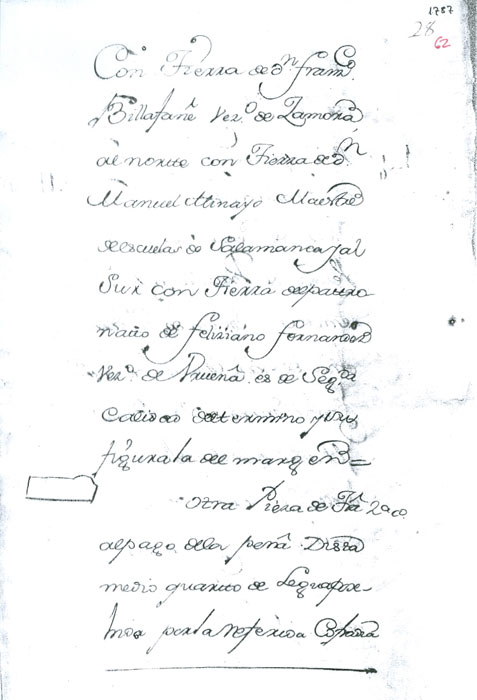 1787
28
62
Con Tierra de Dn. Franco.
Billafañe Vezo. de Zamora
al norte con Tierra de Dn
Manuel Minayo Maestre
de escuelas de Salamanca y al
Sur con Tierra del patro
nato de Feliziano Fernandez
Vezo. de es de Segda
Calidad de termino y su
figura la del margen =
otra Pieza de
al pago de la peña Dista
medio quarto de Legua
por la referida Cofradia